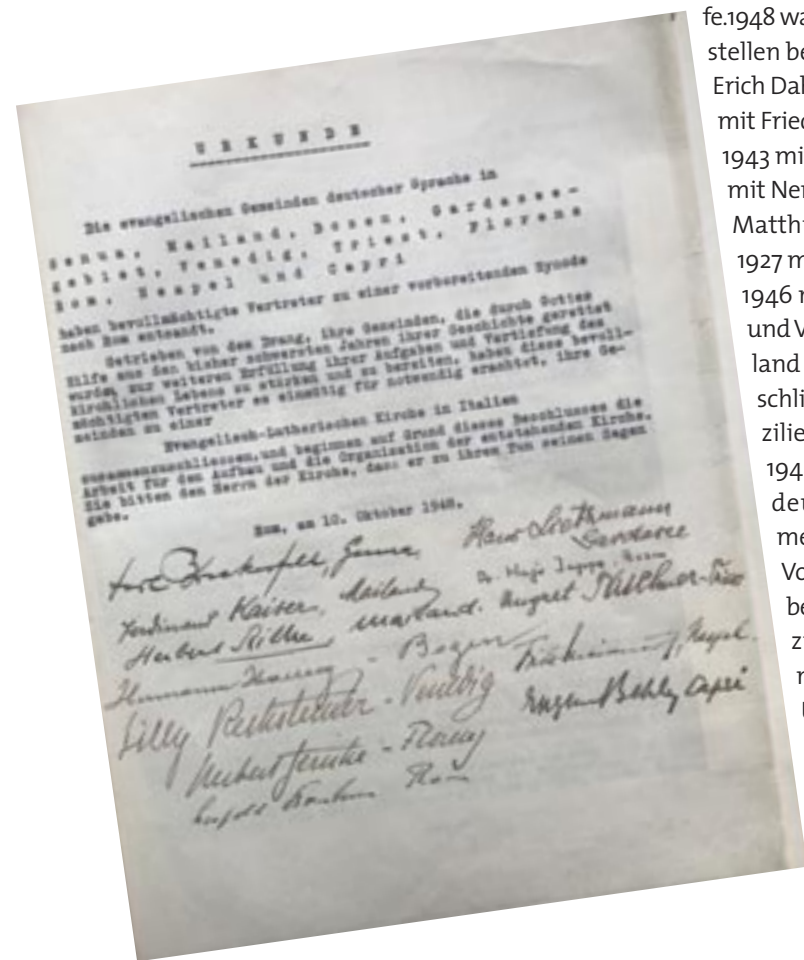 URKUNDE
Die evangelischen Gemeinden deutscher Sprache in
Genua, Mailand, Bozen, Gardasee-
gebiet, Venedig, Triest, Florenz
Rom, Neapel und Capri
haben bevollmächtigte Vertreter zu einer vorbereitenden Synode
nach Rom entsandt.
Getrieben von dem Drang, ihre Gemeinden, die durch Gottes
Hilfe aus den bisher schwersten Jahren ihrer Geschichte gerettet
wurden zur weiteren Erfüllung ihrer Aufgaben und Vertiefung des
kirchlichen Lebens zu stärken und zu bereiten, haben diese bevoll-
mächtigten Vertreter es einmütig für notwendig erachtet, ihre Ge-
meinden zu einer
Evangelisch-Lutherischen Kirche in Italien
zusammenzuschliessen, und beginnen auf Grund dieses Beschlusses die
Arbeit für den Aufbau und die Organisation der entstehenden Kirche.
Sie bitten den Herrn der Kirche, dass er zu ihrem Tun seinen Segen
gebe.
Rom, am 10. Oktober 1948.
Genua
Hans
Gardasee
Ferdinand Kaiser, Mailand
Dr. Hugo
Herbert Mailand. August
Hermann - Bozen
Neapel
Lilly - Venedig
Eugen Capri
Herbert - Florenz
Rom
fe.1948 wa
stellen be
Erich Dal
mit Fried
1943 mi
mit Ner
Matth
1927 m
1946
und V
land
schli
zilie
194
deu
me
Vo
be
z